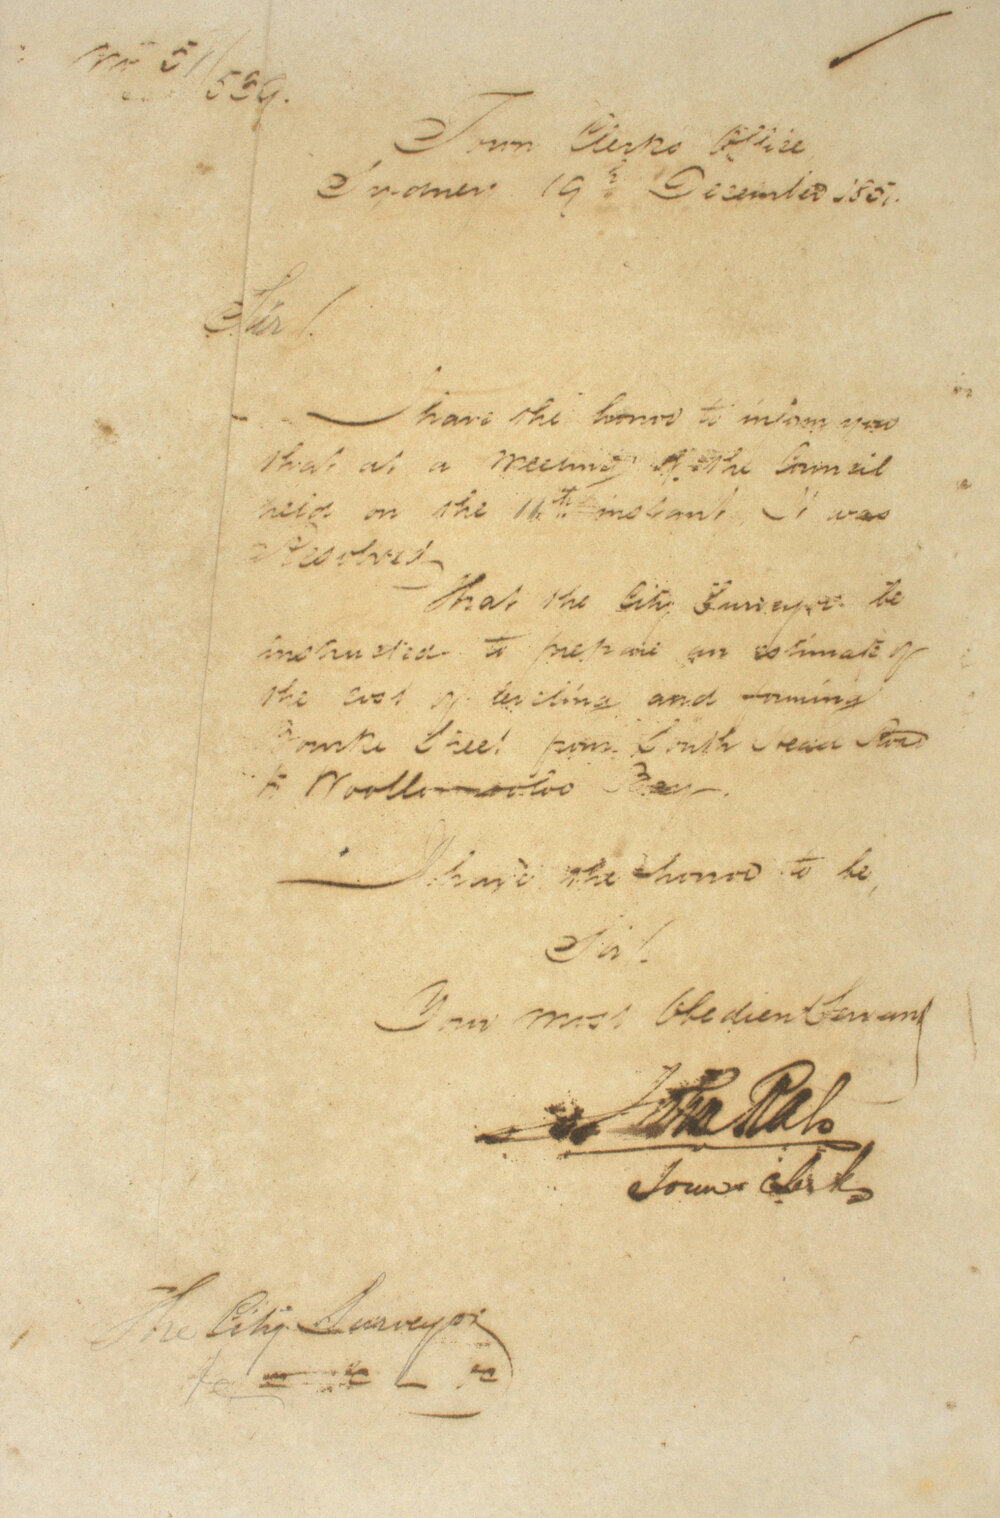 No 51/589.
Town Clerks Office
Sydney 19th December 1851.
Sir!
I have the honor to inform you
that at a Meeting of the Council
held on the 11th instant, It was
Resolved,
That the City Surveyor be
instructed to prepare an estimate of
the cost of leveling and forming
Bourke Street from South Head Road
to Woolloomooloo Bay.
I have the honor to be,
Sir!
Your most Obedient Servant
John Rae
Town Clerk
The City Surveyor